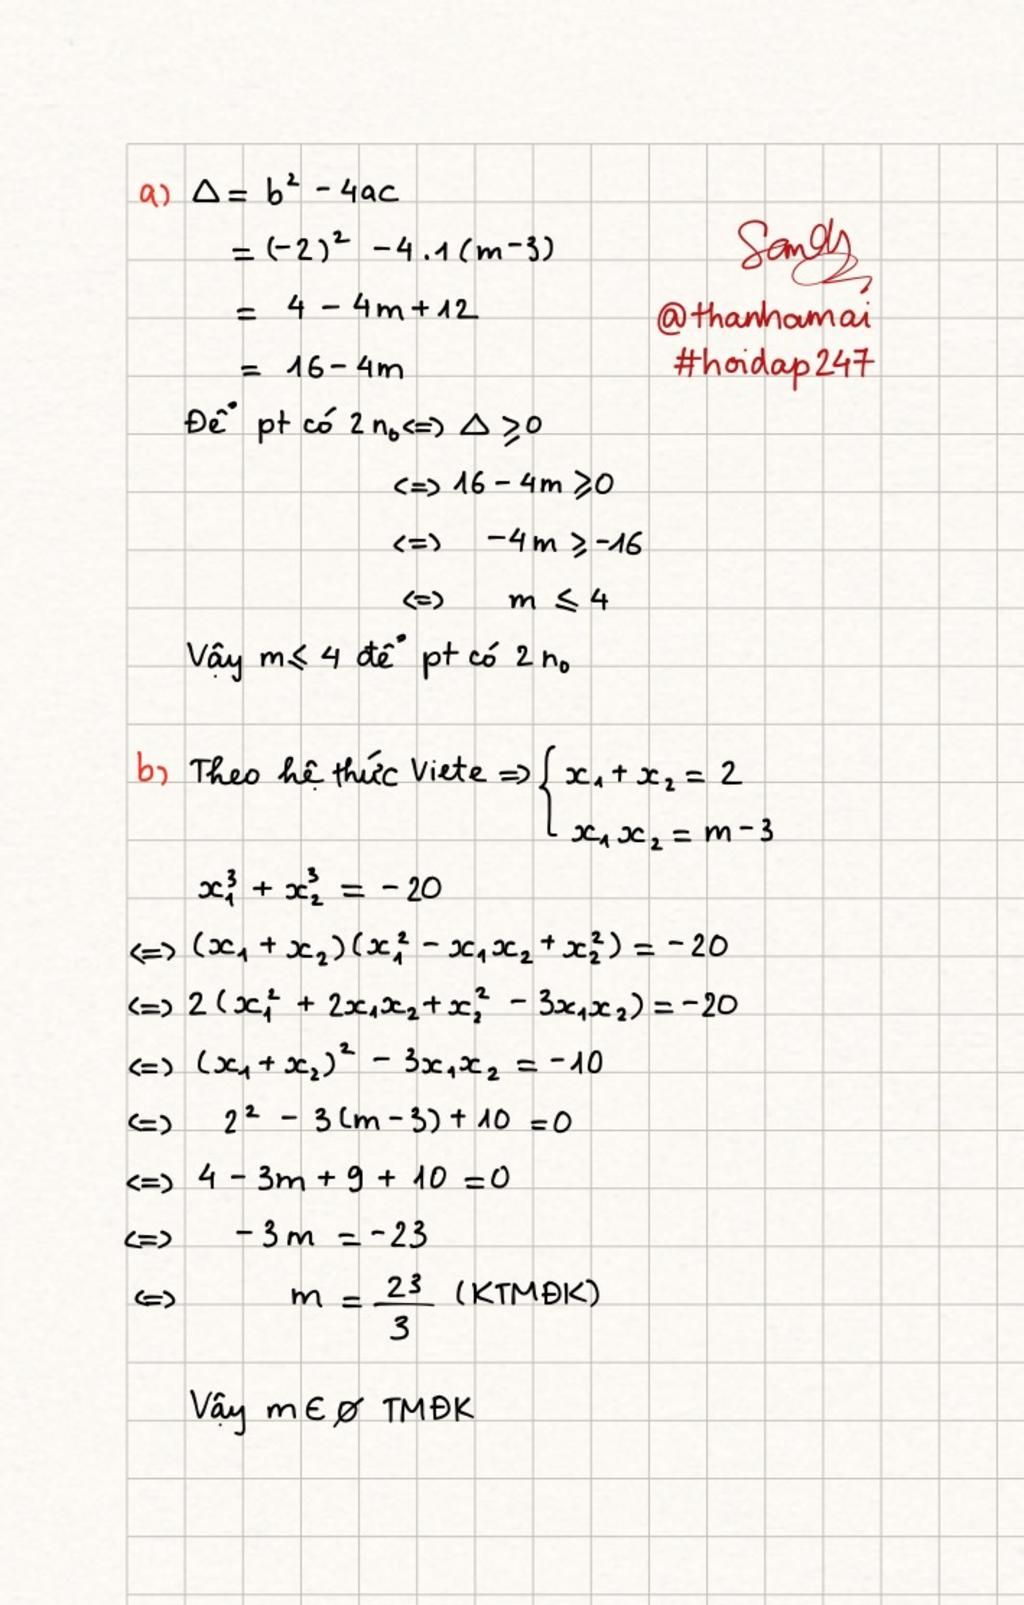 a) Δ = b² - 4ac
= (-2)² - 4.1(m-3)
= 4 - 4m + 12
= 16 - 4m
Sandy
@thanhamai
#hoidap247
Để pt có 2 n₀ <=> Δ ⩾ 0
<=> 16 - 4m ⩾ 0
<=> -4m ⩾ -16
<=> m ⩽ 4
Vậy m ⩽ 4 để pt có 2 n₀
b) Theo hệ thức Viete => { x₁ + x₂ = 2
x₁x₂ = m - 3
x₁³ + x₂³ = -20
<=> (x₁ + x₂)(x₁² - x₁x₂ + x₂²) = -20
<=> 2(x₁² + 2x₁x₂ + x₂² - 3x₁x₂) = -20
<=> (x₁ + x₂)² - 3x₁x₂ = -10
<=> 2² - 3(m-3) + 10 = 0
<=> 4 - 3m + 9 + 10 = 0
<=> -3m = -23
<=> m = 23/3 (KTMĐK)
Vậy m ∈ ∅ TMĐK